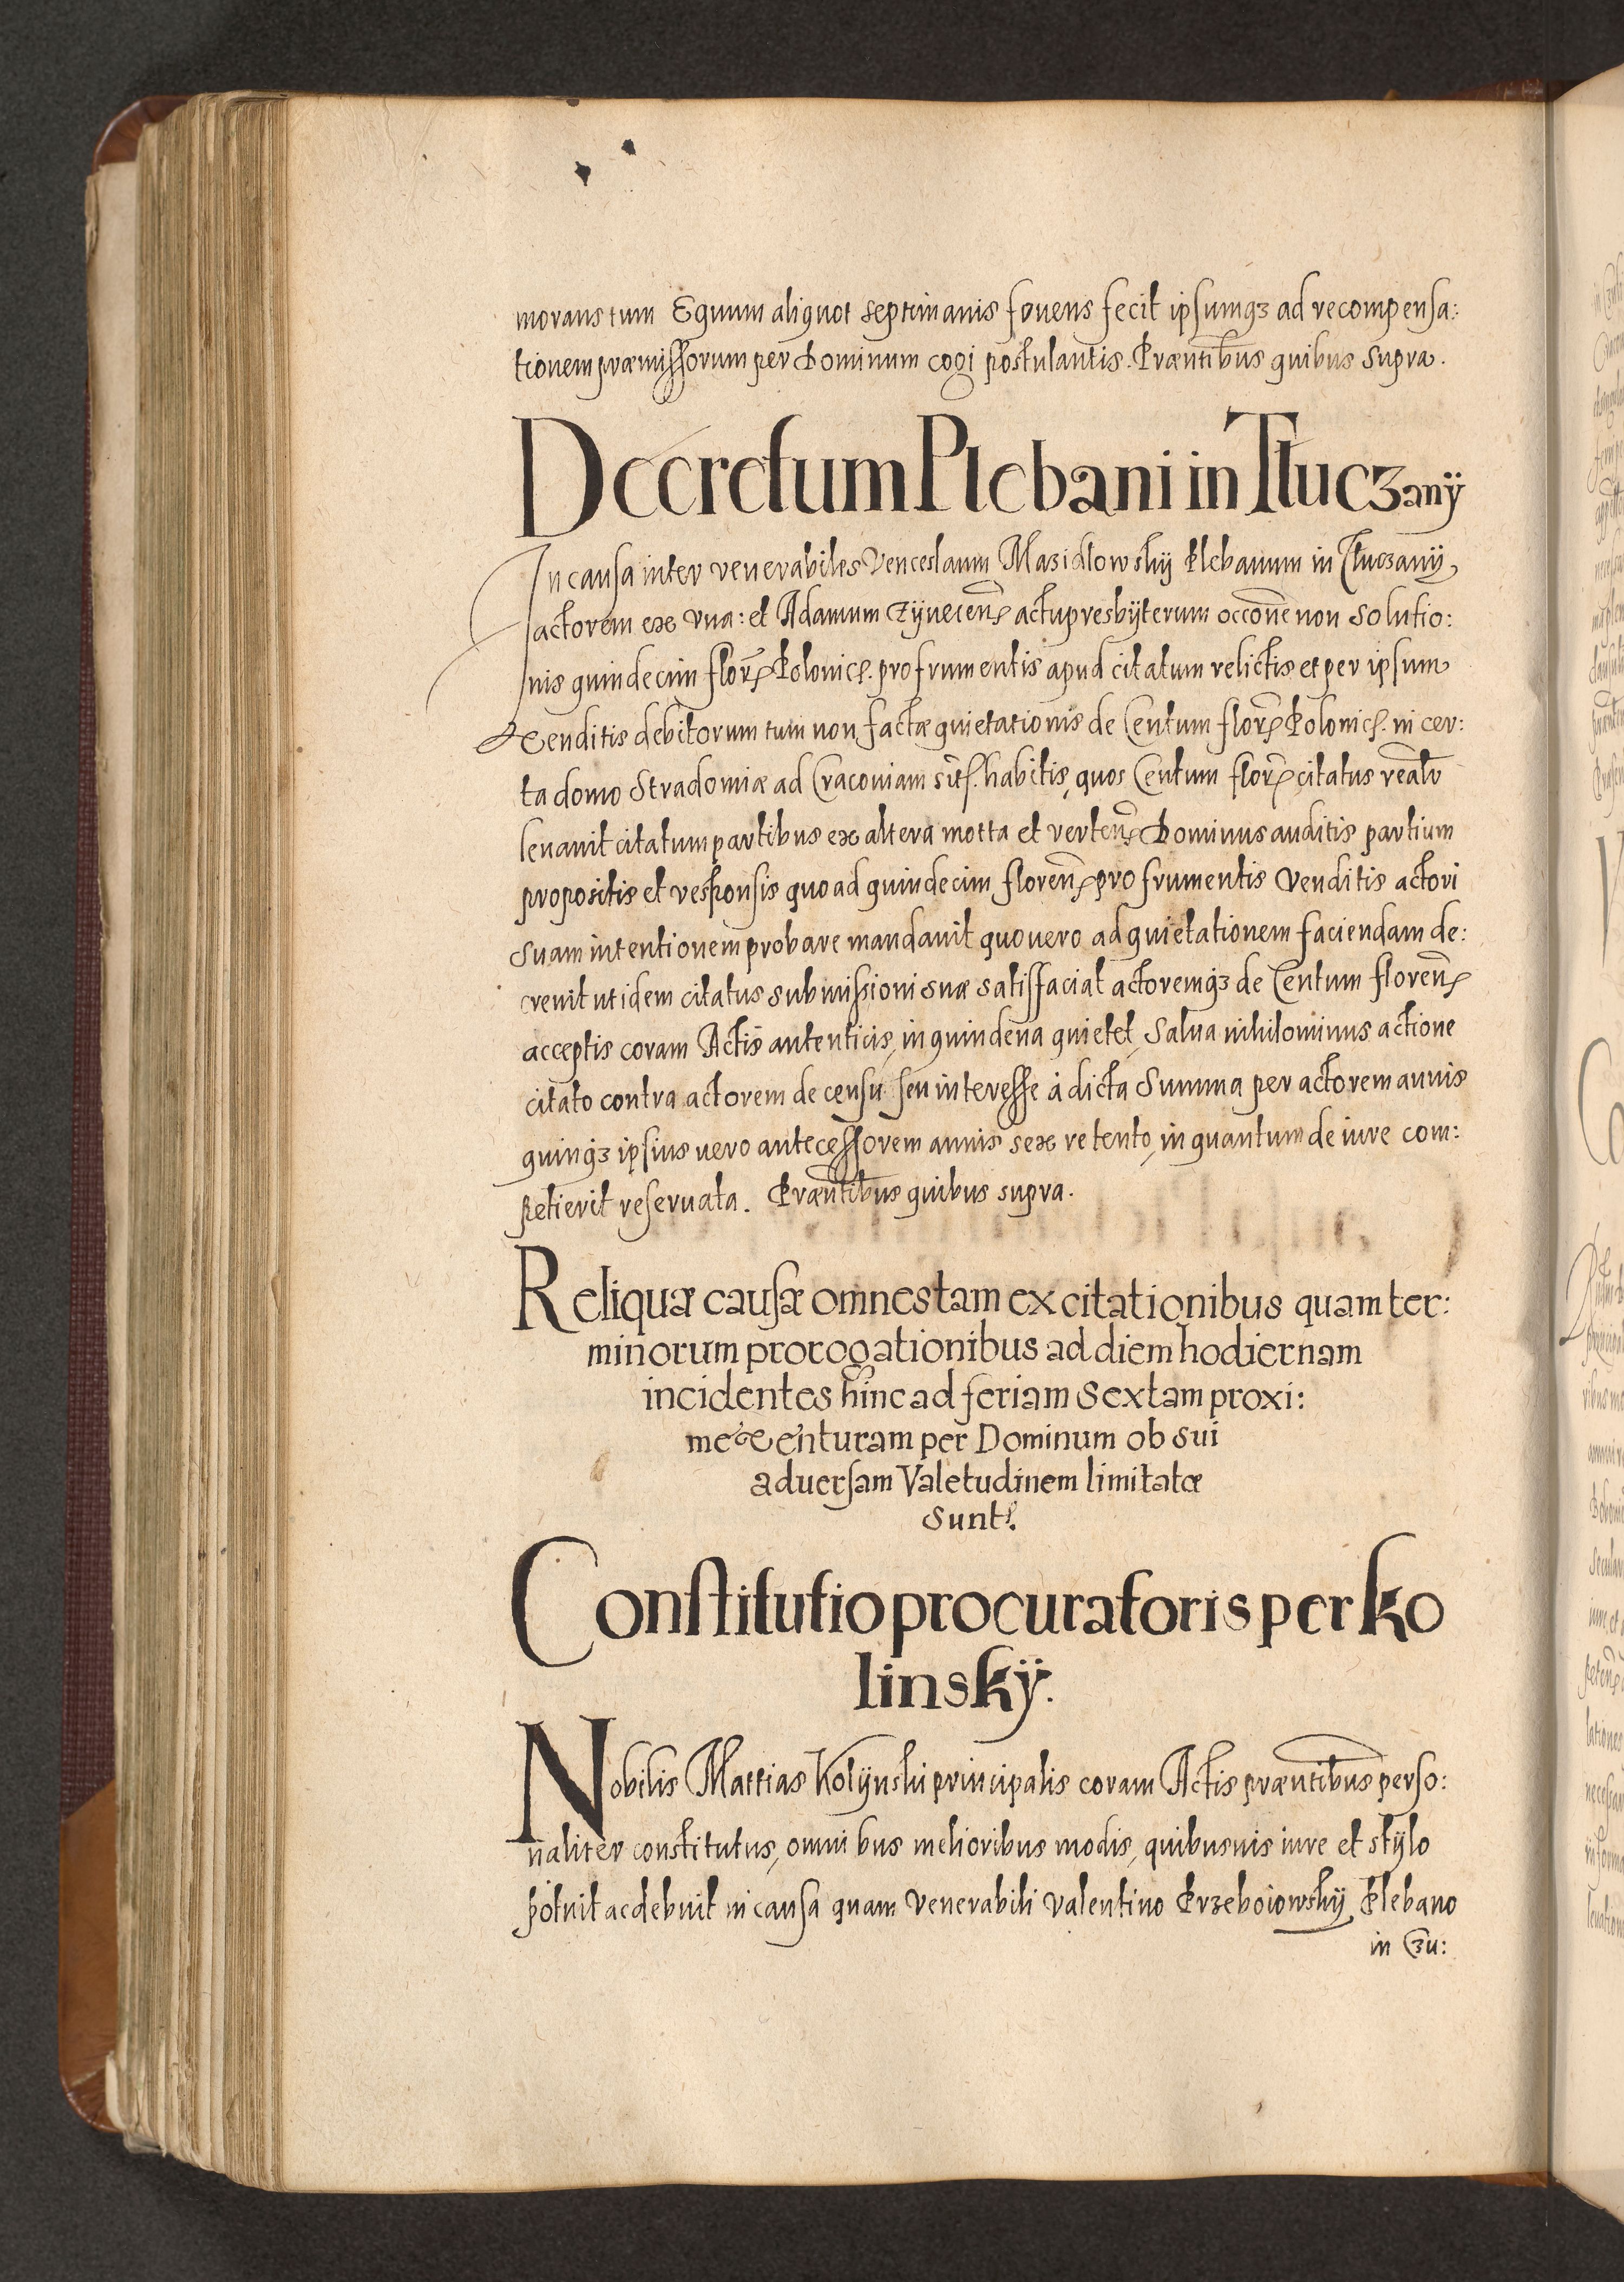 morans tum Equum aliquot septimanis fovens fecit ipsumqȝ ad recompensa:
tionem præmissorum per Dominum cogi postulantis. Præntibus quibus supra.
Decretum Plebani in Tłuczanÿ
In causa inter venerabiles Venceslaum Masidłowskÿ Plebanum in Tłuczanÿ,
actorem ex vna: et Adamum Zÿnecens̃ actu presbÿterum occõne non solutio:
nis quindecim flor̃ Polonic̃. pro frumentis apud citatum relictis et per ipsum
venditis debitorum tum non factæ quietationis de Centum flor̃ Polonic̃. in cer:
ta domo Stradomiæ ad Cracoviam sit̃. habitis, quos Centum flor̃ citatus reałr
levavit citatum partibus ex altera motta et verteñ Dominus auditis partium
propositis et responsis quoad quindecim floreñ pro frumentis venditis actori
suam intentionem probare mandavit quo vero ad quietationem faciendam de:
crevit ut idem citatus submissioni suæ satisfaciat actoremqȝ de Centum floreñ
acceptis coram Actis autenticis, in quindena quietet, Salva nihilominus actione
citato contra actorem de censu seu interesse à dicta Summa per actorem annis
quinqȝ ipsius vero antecessorem annis sex retento, in quantum de iure com:
petierit reservata. Præntibus quibus supra.
Reliquæ causæ omnes tam ex citationibus quam ter:
minorum prorogationibus ad diem hodiernam
incidentes hinc ad feriam Sextam proxi:
me venturam per Dominum ob sui
adversam Valetudinem limitatæ
sunt.
Constitutio procuratoris per Ko
linskÿ.
Nobilis Mattias Kolÿnski principalis coram Actis præntibus perso:
naliter constitutus, omnibus melioribus modis, quibusuis iure et stÿlo
potuit ac debuit in causa quam Venerabili Valentino Przeboiowskÿ Plebano
in Czu: